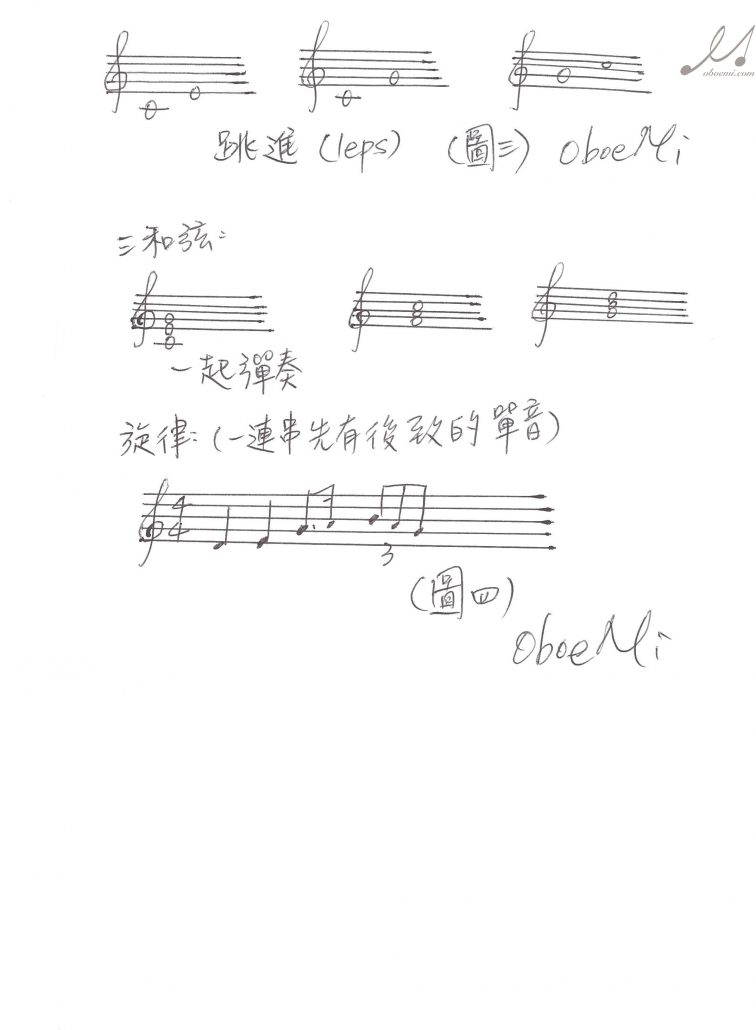 oboemi.com
跳進 (leps) (圖三) OboeMi
三和弦:
一起彈奏
旋律: (一連串先有後致的單音)
4
4
3
(圖四)
OboeMi